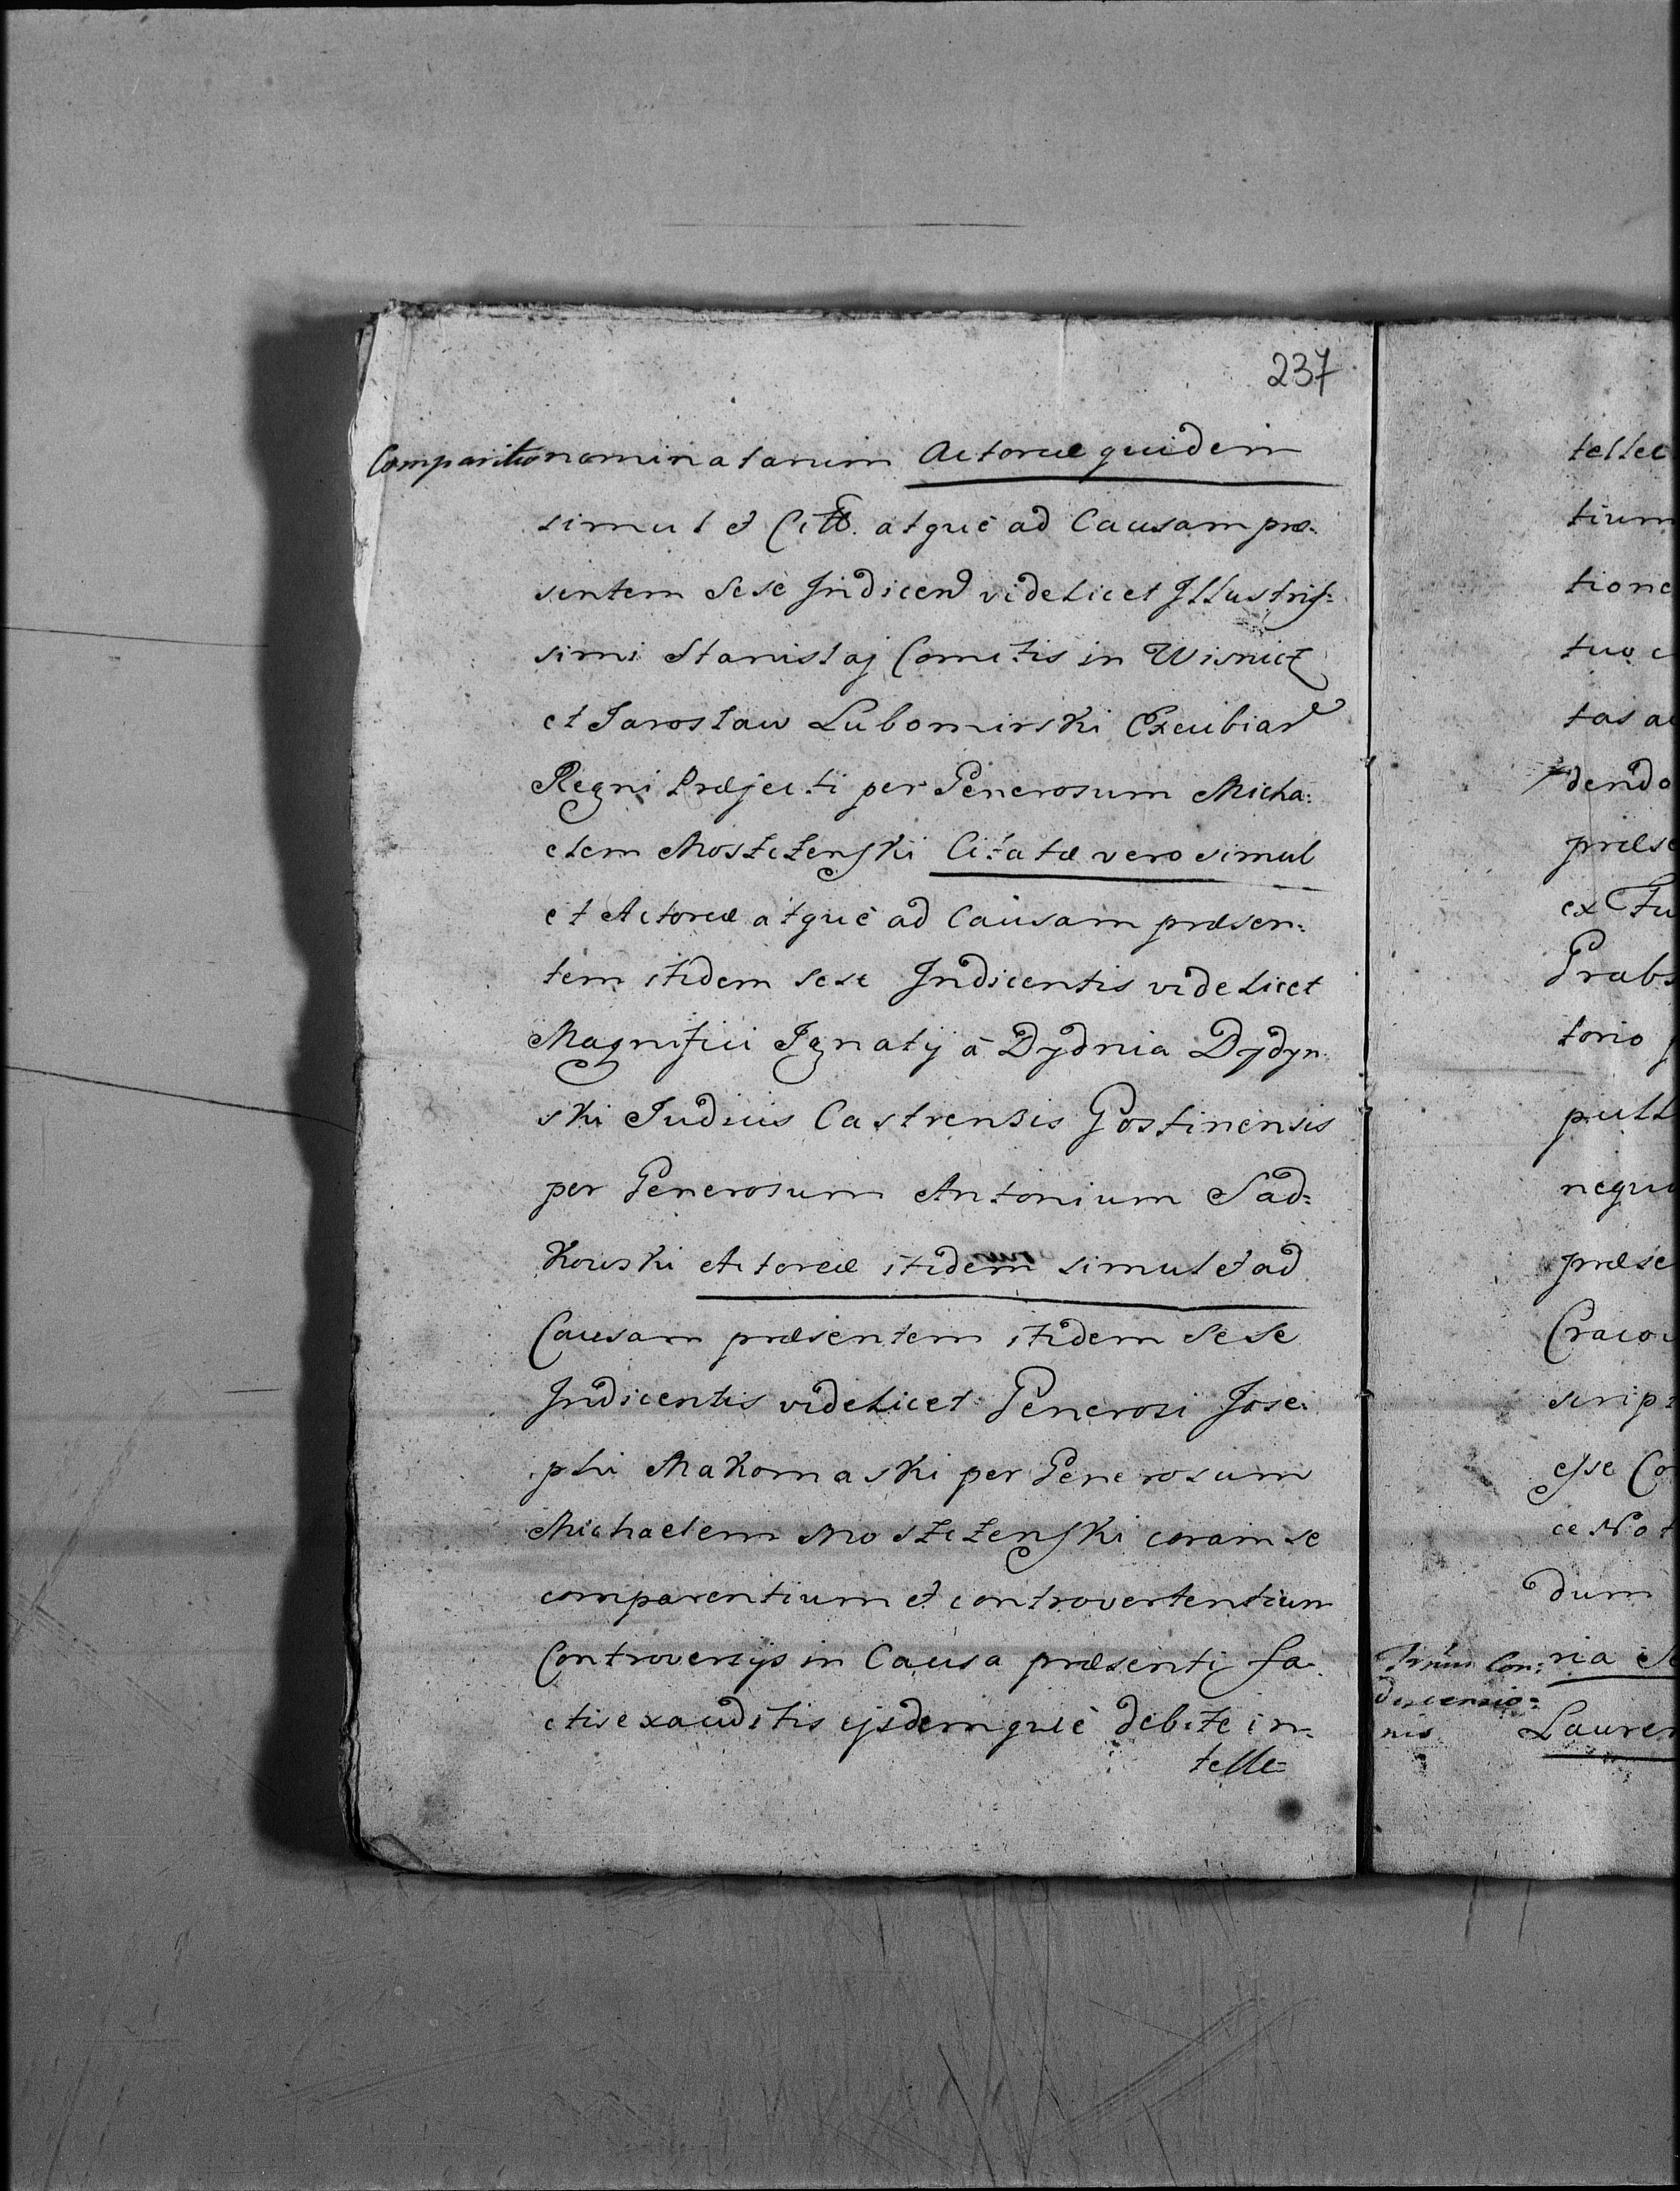 237
Comparitio nominatarum Actoreæ quidem
simul et Citt. atquè ad Causam præ-
sentem sese Indicen videlicet Illustris-
simi Stanislaj Comitis in Wisnicz
et Jarosław Lubomirski Excubiar
Regni Præfecti per Generosum Micha:
elem Moszczenski Citatæ vero simul
et Actoreæ atquè ad Causam præsen:
tem itidem sese Indicentis videlicet
Magnifici Ignatij à Dydnia Dydyn-
ski Judicis Castrensis Gostinensis
per Generosum Antonium Sad:
kowski Actoreæ itidem simul et ad
Causam præsentem itidem sese
Indicentis videlicet Generosi Jose:
phi Makomaski per Generosum
Michaelem Moszczenski coram se
comparentium et controvertentium
Controversijs in Causa præsenti fa-
ctis exauditis ejsdemquè debite in-
telle-
tellec
tium
tione
tuo c
tas a
dendo
præse
ex Fu
Grabs
torio
pull
nequa
præse
Craco
scrip
esse Co
ce Not
dum
ria
Con:
descensio:
nis
Lauren